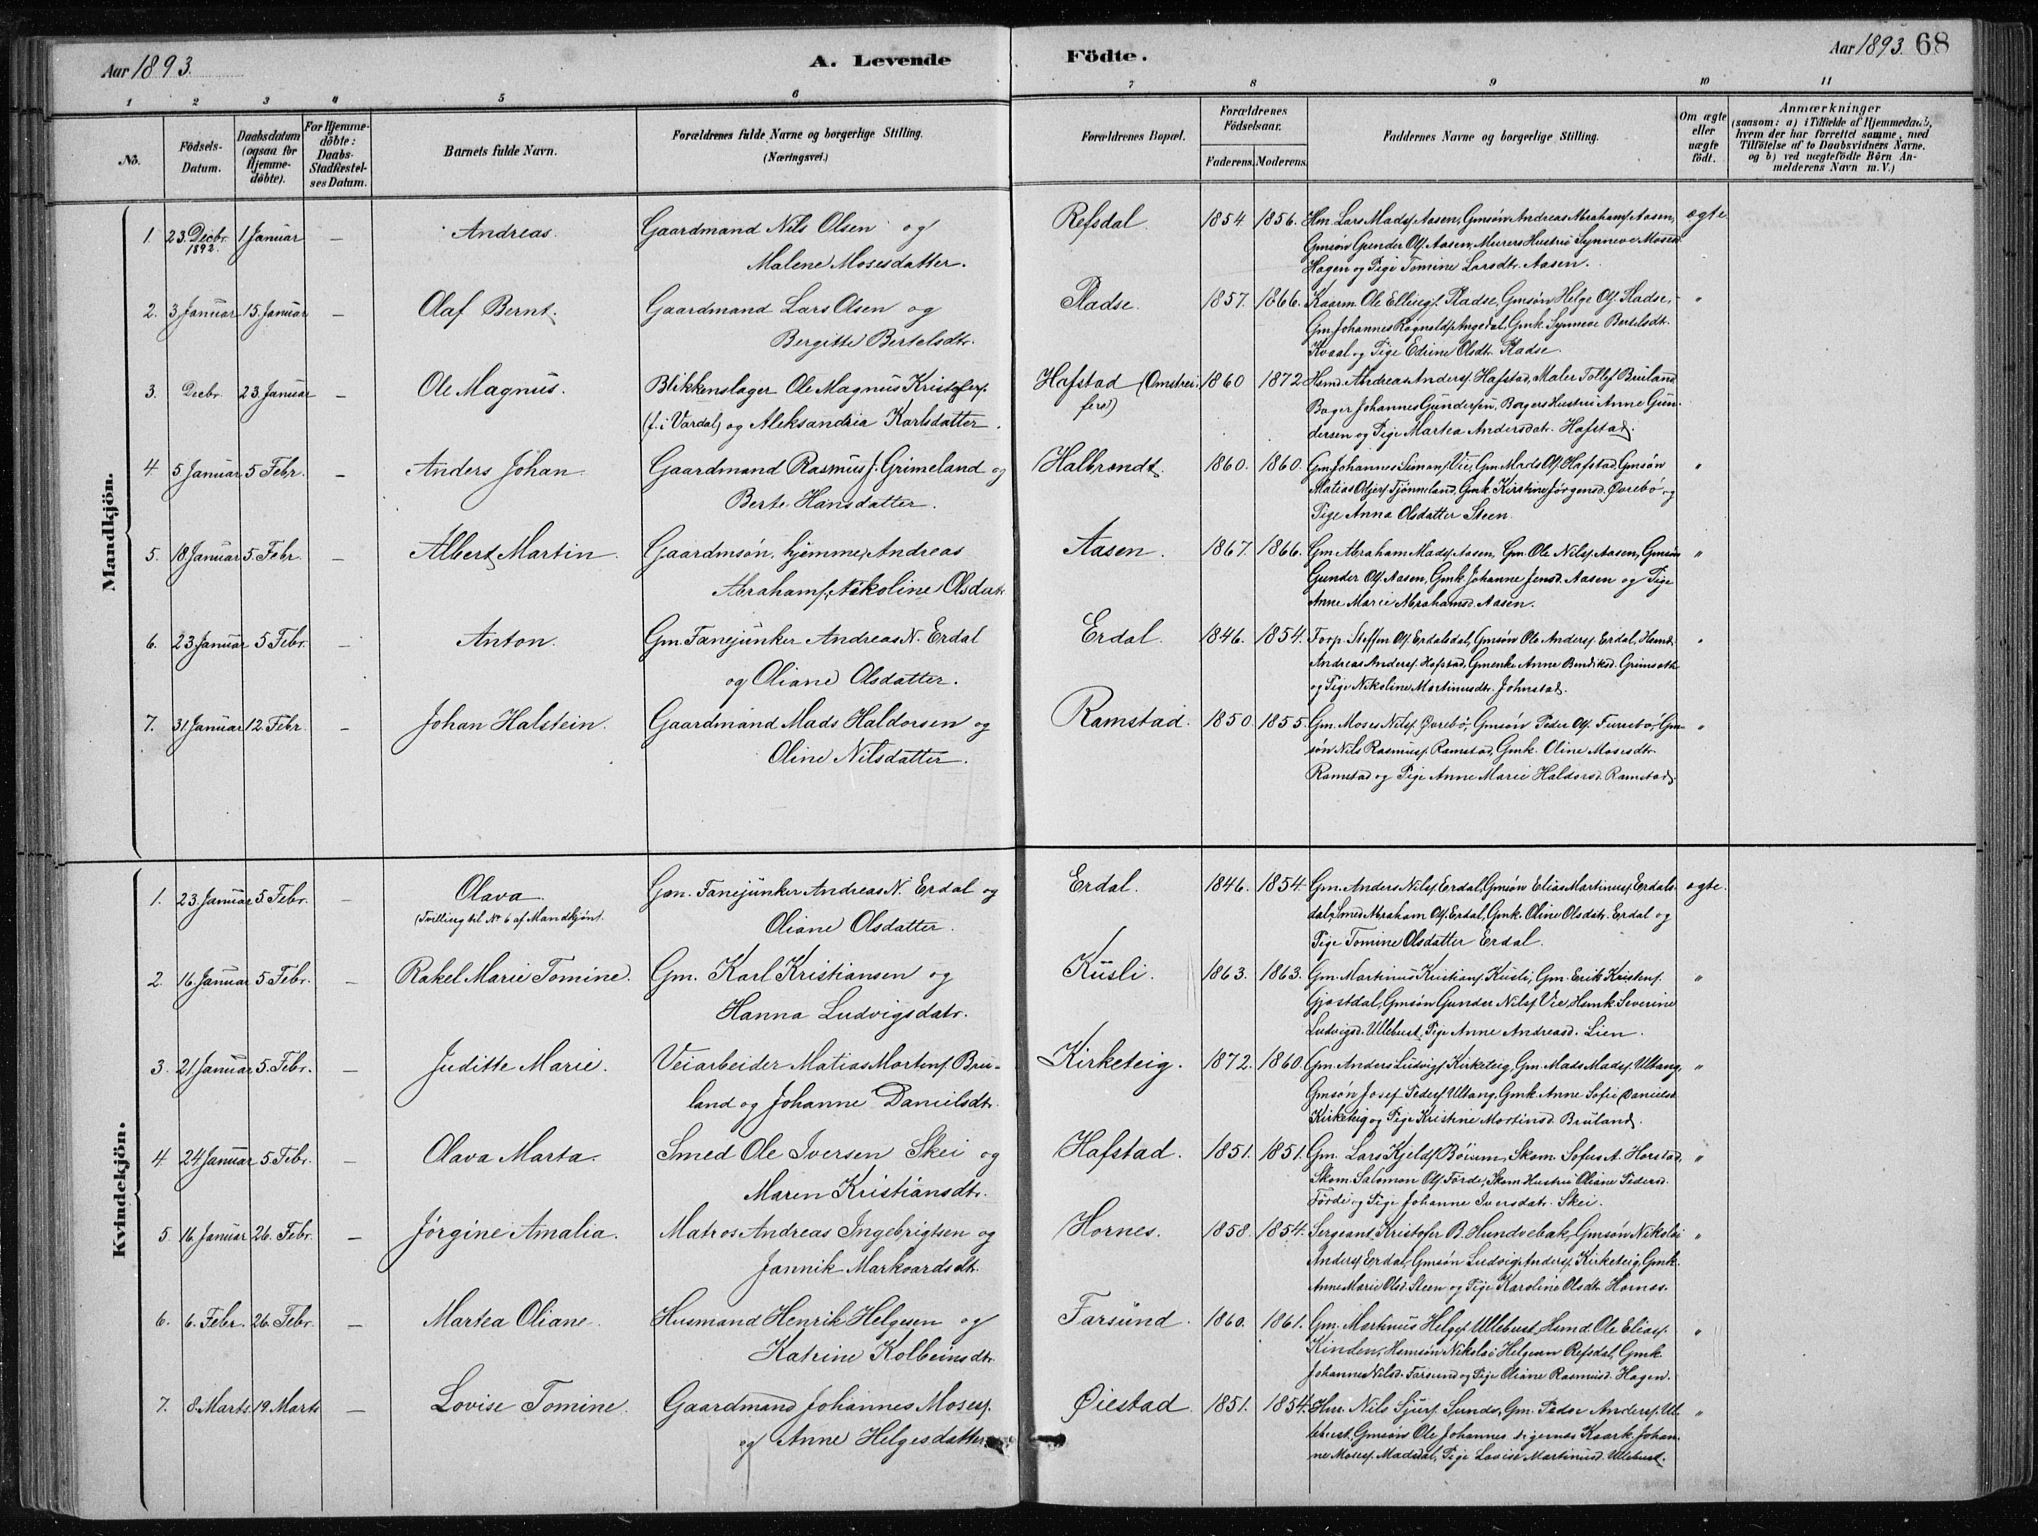 Aar 1893.
A. Levende
Födte.
Aar 1893. 68
1 2 3 4 5 6 7 8 9 10 11
No.
Födsels-Datum.
Daabsdatum (ogsaa for Hjemme-döbte).
For Hjemme-döbte: Daabs-Stadfæstel-ses Datum.
Barnets fulde Navn.
Forældrenes fulde Navne og borgerlige Stilling.
(Næringsvei.)
Forældrenes Bopæl.
Forældrenes Födselsaar.
Faderens. Moderens.
Faddernes Navne og borgerlige Stilling.
Om ægte eller uægte födt.
Anmærkninger
(saasom: a) i Tilfælde af Hjemmedaab, hvem der har forrettet samme, med Tilföielse af to Daabsvidners Navne. og b) ved uægtefödte Börn An-melderens Navn m. V.)
Mandkjön.
1 23. Decbr. 1892. 1 Januar — Andreas. Gaardmand Nils Olsen og Refsdal 1854 1856. Hm. Lars Mads. Aasen, Gmsøn Andreas Abrahams. Aasen, ægte.
Malene Mosesdatter. Gmsøn Gunder Ols. Aasen, Murers Hustru Synneve Moses.
Hagen og Pige Tomine Larsdtr. Aasen.
2. 3 Januar 15 Januar — Olaf Bernt. Gaardmand Lars Olsen og Stadse. 1857. 1866. Kaarm. Ole Ellings. Stadse, Gmsøn Helge Ols. Stadse, "
Bergitte Bertelsdtr. Gm. Johannes Ragnalds. Angedal, Gmk. Synneve Bertelsdt.
Kvaal og Pige Edine Olsdt. Stadse.
3. Decbr. 23. Januar — Ole Magnus. Blikkenslager Ole Magnus Kristofers. Hafstad (Omstrei- 1860 1872 Hsmd. Andreas Anders. Hafstad, Maler Tollef Bruland
(f. i Vardal) og Aleksandria Karlsdatter. fere) Bager Johannes Gundersen, Bagers Hustru Anne Gun-
dersen og Pige Martea Andersdat. Hafstad.
4. 5 Januar 5 Febr. — Anders Johan Gaardmand Rasmus J. Grimeland og Halbrendt. 1860. 1860. Gm. Johannes Simons. Vie, Gm. Mads Ols. Hafstad, Gmsøn "
Berte Hansdatter. Matias Tjønneland, Gmk. Kirstine Jörgensd. Øvrebö, og
Pige Anna Olsdatter Steen.
5. 18 Januar 5 Febr. — Albert Martin. Gaardmsøn, hjemme, Andreas Aasen. 1867. 1866. Gm. Abraham Mads. Aasen, Gm. Ole Nils. Aasen, Gmsøn "
Abrahams., Nikoline Olsdtr. Gunder Ols. Aasen, Gmk. Johanne Jensd. Aasen og Pige
Anne Marie Abrahamsd. Aasen.
6. 23 Januar 5 Febr. — Anton. Gm. Fanejunker Andreas N. Erdal Erdal. 1846. 1854. Forp. Steffen Ols. Erdalsdal, Gmsøn Ole Anders. Erdal, Hsmd. "
og Oliane Olsdatter. Andreas Anders. Hafstad, Gmenke Anne Bendiksd. Grimseth
og Pige Nikoline Martinusdtr. Johnstad.
7. 31 Januar 12 Febr. — Johan Halstein. Gaardmand Mads Haldorsen og Ramstad. 1850. 1855. Gm. Moses Nils. Øvrebö, Gmsøn Peder Ols. Furebö, Gm- "
Oline Nilsdatter. søn Nils Rasmus. Ramstad, Gmk. Oline Mosesdtr.
Ramstad og Pige Anne Marie Haldorsd. Ramstad.
Kvindekjön.
1. 23 Januar 5. Febr. — Olava Gm. Fanejunker Andreas N. Erdal og Erdal. 1846. 1854. Gm. Anders Nils. Erdal, Gmsøn Elias Martinus. Erdals- ægte.
(Tvilling til No 6 af Mandkjön). Oliane Olsdatter. dal, Smed Abraham Ols. Erdal, Gmk. Oline Olsdtr. Erdal og
Pige Tomine Olsdatter Erdal.
2. 16 Januar 5 Febr. — Rakel Marie Tomine. Gm. Karl Kristiansen og Kusli. 1863. 1863. Gm. Martinus Kristians. Kusli, Gm. Erik Kristens. "
Hanna Ludvigsdatr. Gjesdal, Gmsøn Gunder Nils. Vie, Hsmk. Severine
Ludvigsd. Ullebust, Pige Anne Andreasd. Lien.
3. 21 Januar 5. Febr. — Juditte Marie. Veiarbeider Matias Mortens. Bru- Kirketeig. 1872. 1860. Gm. Anders Ludvigs. Kirketeig, Gm. Mads Mads. Ultang, "
land og Johanne Danielsdt. Gmsøn Josef Peders. Ultang, Gmk. Anne Sofie Danielsd.
Kirketeig og Pige Kristine Mortinsd. Bruland.
4. 24 Januar 5. Febr. — Olava Marta. Smed Ole Iversen Skei og Hafstad. 1851. 1851. Gm. Lars Kjelds. Böium, Skom. Sofus A. Horstad, "
Maren Kristiansdt. Skom. Salomon Ols. Förde, Skom. Hustru Oliane Pedersd.
Förde og Pige Johanne Iversdatr. Skei.
5. 16 Januar 26. Febr. — Jörgine Amalia. Matros Andreas Ingebrigtsen og Hornes. 1858. 1854. Sergeant Kristofer B. Hundvebak, Gmsøn Nikolai "
Jannik Markvardsdt. Anders. Erdal, Gmsøn Ludvig Anders. Kirketeig, Gmk.
Anne Marie Olsd. Steen og Pige Karoline Olsdt. Hornes.
6. 6. Febr. 26. Febr. — Martea Oliane. Husmand Henrik Helgesen og Farsund. 1860. 1861. Gm. Martinus Helges. Ullebust, Hsmd. Ole Elias. "
Katrine Kolbeinsdt. Kinden, Hsmsøn Nikolai Helgesen Refsdal, Gmk.
Johanne Nilsd. Farsund og Pige Oliane Rasmusd. Hagen.
7. 8. Marts. 19 Marts — Lovise Tomine. Gaardmand Johannes Moses. Øiestad 1851. 1854. Hm. Nils Sjurs. Sunde, Gm. Peder Anders. Ul- "
og Anne Helgesdatter lebust, Gmsøn Ole Johannes Kaark. Johan-
ne Moses. Madsdal, Pige Lovise Martinusd. Ullebust.